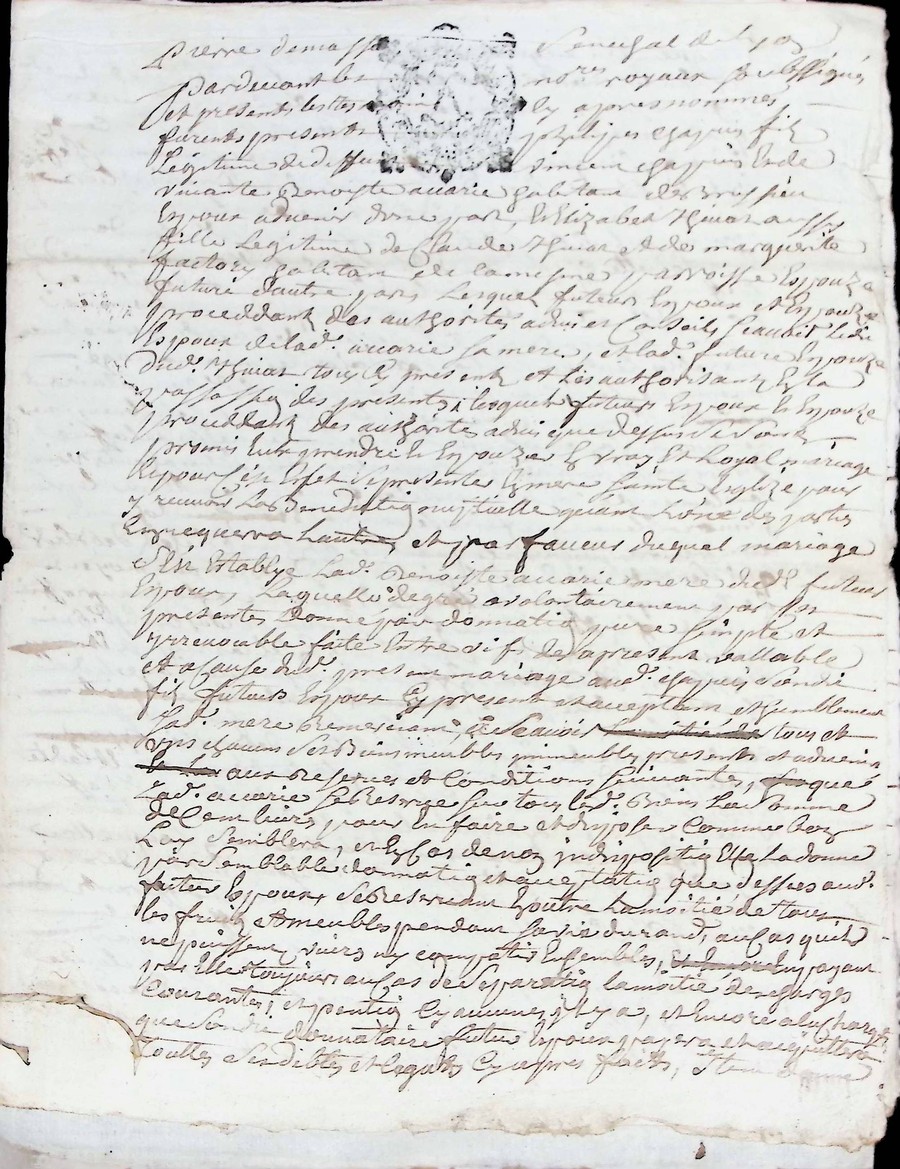 Pierre de masso Senechal de Lyon
Pardevant les no.res royaux soubssignés
et presents les tesmoins cy apres nommes
furent presents philippes chapuis filz
Legitime de deffunt vincent chapuis et de
vivante Benoiste avarie habitant de Brussieu
Espoux advenir d'une part, et Elizabet thivar aussy
fille Legitime de Claude thivar et de marguerite
factory habitant de la mesme parroisse Espouze
future d'autre part Lesquels futeurs Espoux et Espouze
proceddant des authorités advis et Conseils sçavoir Ledit
Espoux de lad. avarie sa mere, et lad. future Espouze
dud. thivar tous cy presents et Les authorisant Et la
passassion des presentes, lesquels futeurs Espoux et Espouze
proceddant des authorités advis que dessus se sont
promis Entreprendre et Espouzer En vray Et Loyal mariage
Et pour cest Effet se presenter En mere sainte Esglize pour
y recevoir La Benediction nuptielle quand L'une des parties
En requerra L'autre, et par faveur duquel mariage
s'est Establye Lad. Benoiste avarie mere dud. futeur
Espoux, Laquelle de gré a volontairement par ces
presentes donne par donnation pure simple et
yrrevocable faite Entre vifs des apresent vallable
et a Cause dud. present mariage aud. chapuis son dit
filz futeur Espoux Cy present et acceptant et humblement
Lad. mere Remerciant, de sçavoir tous et
uns chacuns ses Biens meubles immeubles presents et advenir
aux Reserves et Conditions suivantes, que
Lad. avarie se Reserve sur tous lesd. Biens La somme
de Cent livres pour En faire et disposer Comme bon
Luy semblera, et En Cas de non indisposition Elle La donne
par semblable donnation et acceptation que dessus aud.
futeur Espoux, se Reservant En outre La moitié de tous
les fruits et meubles pendant sa vie durand, au Cas quils
ne puissent vivre ny compatir Ensembles, En payant
par Elle toujours au Cas de separation la moitié des charges
Courantes, et pention sy aucunes il y a, et Encore a la charge
que son dit donnataire futeur Espoux payera et acquittera
Touttes ses dibtes et legats Cy apres faitts, Item donne